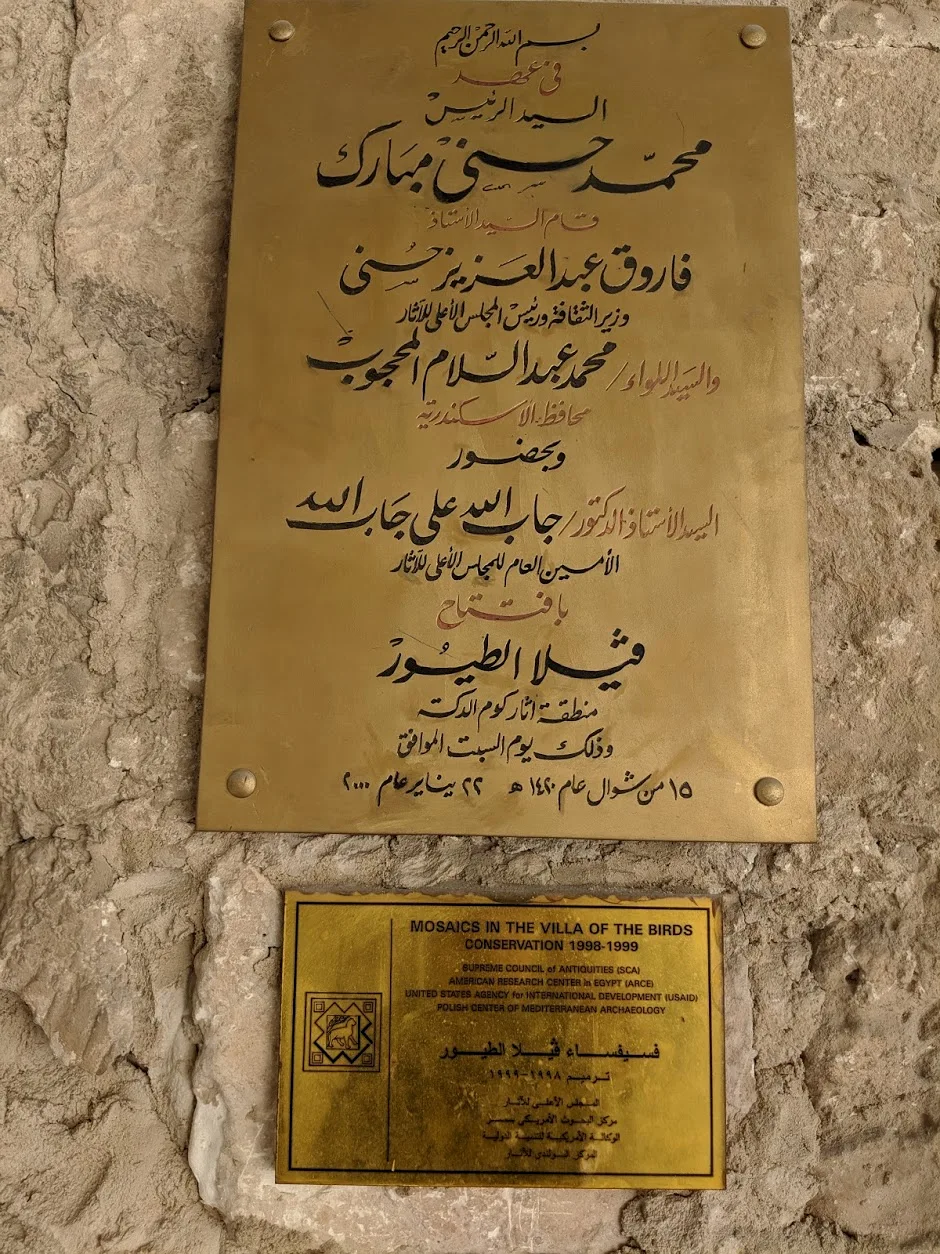 بسم الله الرحمن الرحيم
فى عهد
السيد الرئيس
محمد حسنى مبارك
قام السيد الأستاذ
فاروق عبد العزيز حسنى
وزير الثقافة ورئيس المجلس الأعلى للآثار
والسيد اللواء / محمد عبد السلام المحجوب
محافظ الاسكندرية
وبحضور
السيد الأستاذ الدكتور / جاب الله على جاب الله
الأمين العام للمجلس الأعلى للآثار
بافتتاح
ڤيلا الطيور
منطقة آثار كوم الدكة
وذلك يوم السبت الموافق
١٥ من شوال عام ١٤٢٠ هـ ٢٢ يناير عام ٢٠٠٠
MOSAICS IN THE VILLA OF THE BIRDS
CONSERVATION 1998-1999
SUPREME COUNCIL of ANTIQUITIES (SCA)
AMERICAN RESEARCH CENTER in EGYPT (ARCE)
UNITED STATES AGENCY for INTERNATIONAL DEVELOPMENT (USAID)
POLISH CENTER OF MEDITERRANEAN ARCHAEOLOGY
فسيفساء ڤيلا الطيور
ترميم ١٩٩٨-١٩٩٩
المجلس الأعلى للآثار
مركز البحوث الأمريكى بمصر
الوكالة الأمريكية للتنمية الدولية
المركز البولندى للآثار